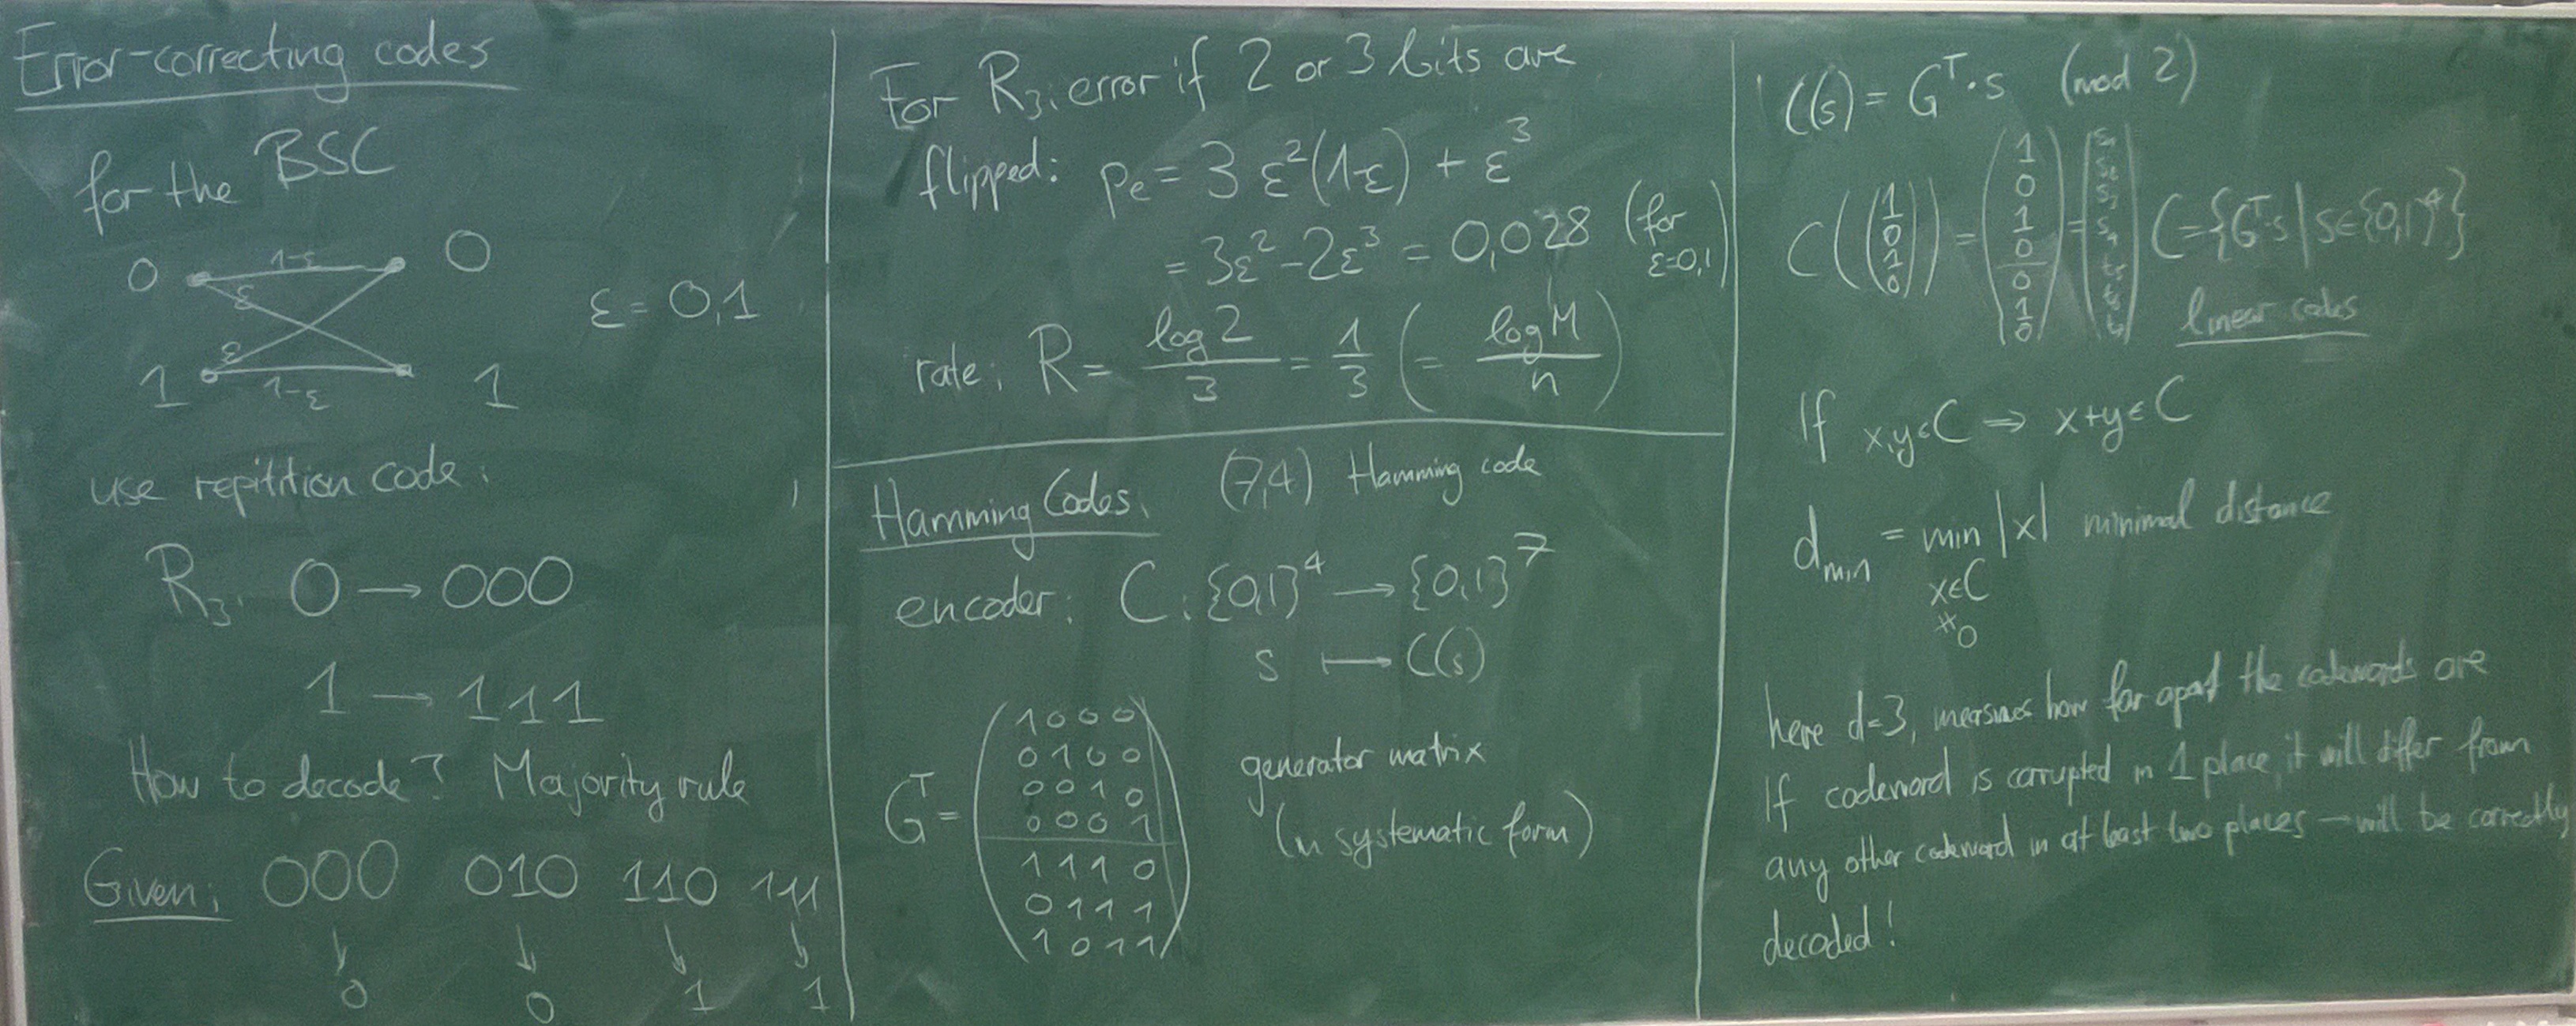 Error-correcting codes
for the BSC
0 1-ε 0
ε
ε = 0,1
ε
1 1-ε 1
use repitition code:
R₃: 0 → 000
1 → 111
How to decode? Majority rule
Given: 000 010 110 111
↓ ↓ ↓ ↓
0 0 1 1
For R₃: error if 2 or 3 bits are
flipped: pe = 3 ε²(1-ε) + ε³
= 3ε² - 2ε³ = 0,028 (for ε=0,1)
rate: R = log 2 / 3 = 1/3 (= log M / n)
Hamming Codes: (7,4) Hamming code
encoder: C: {0,1}⁴ → {0,1}⁷
s ↦ C(s)
Gᵀ =
1 0 0 0
0 1 0 0
0 0 1 0
0 0 0 1
1 1 1 0
0 1 1 1
1 0 1 1
generator matrix
(in systematic form)
C(s) = Gᵀ · s (mod 2)
C((1 0 1 0)) = (1 0 1 0 0 1 0) = C = {Gᵀ·s | s∈{0,1}⁴}
linear codes
If x,y∈C ⇒ x+y∈C
d min = min |x| minimal distance
x∈C
≠0
here d=3, measures how far apart the codewords are
If codeword is corrupted in 1 place, it will differ from
any other codeword in at least two places → will be correctly
decoded!